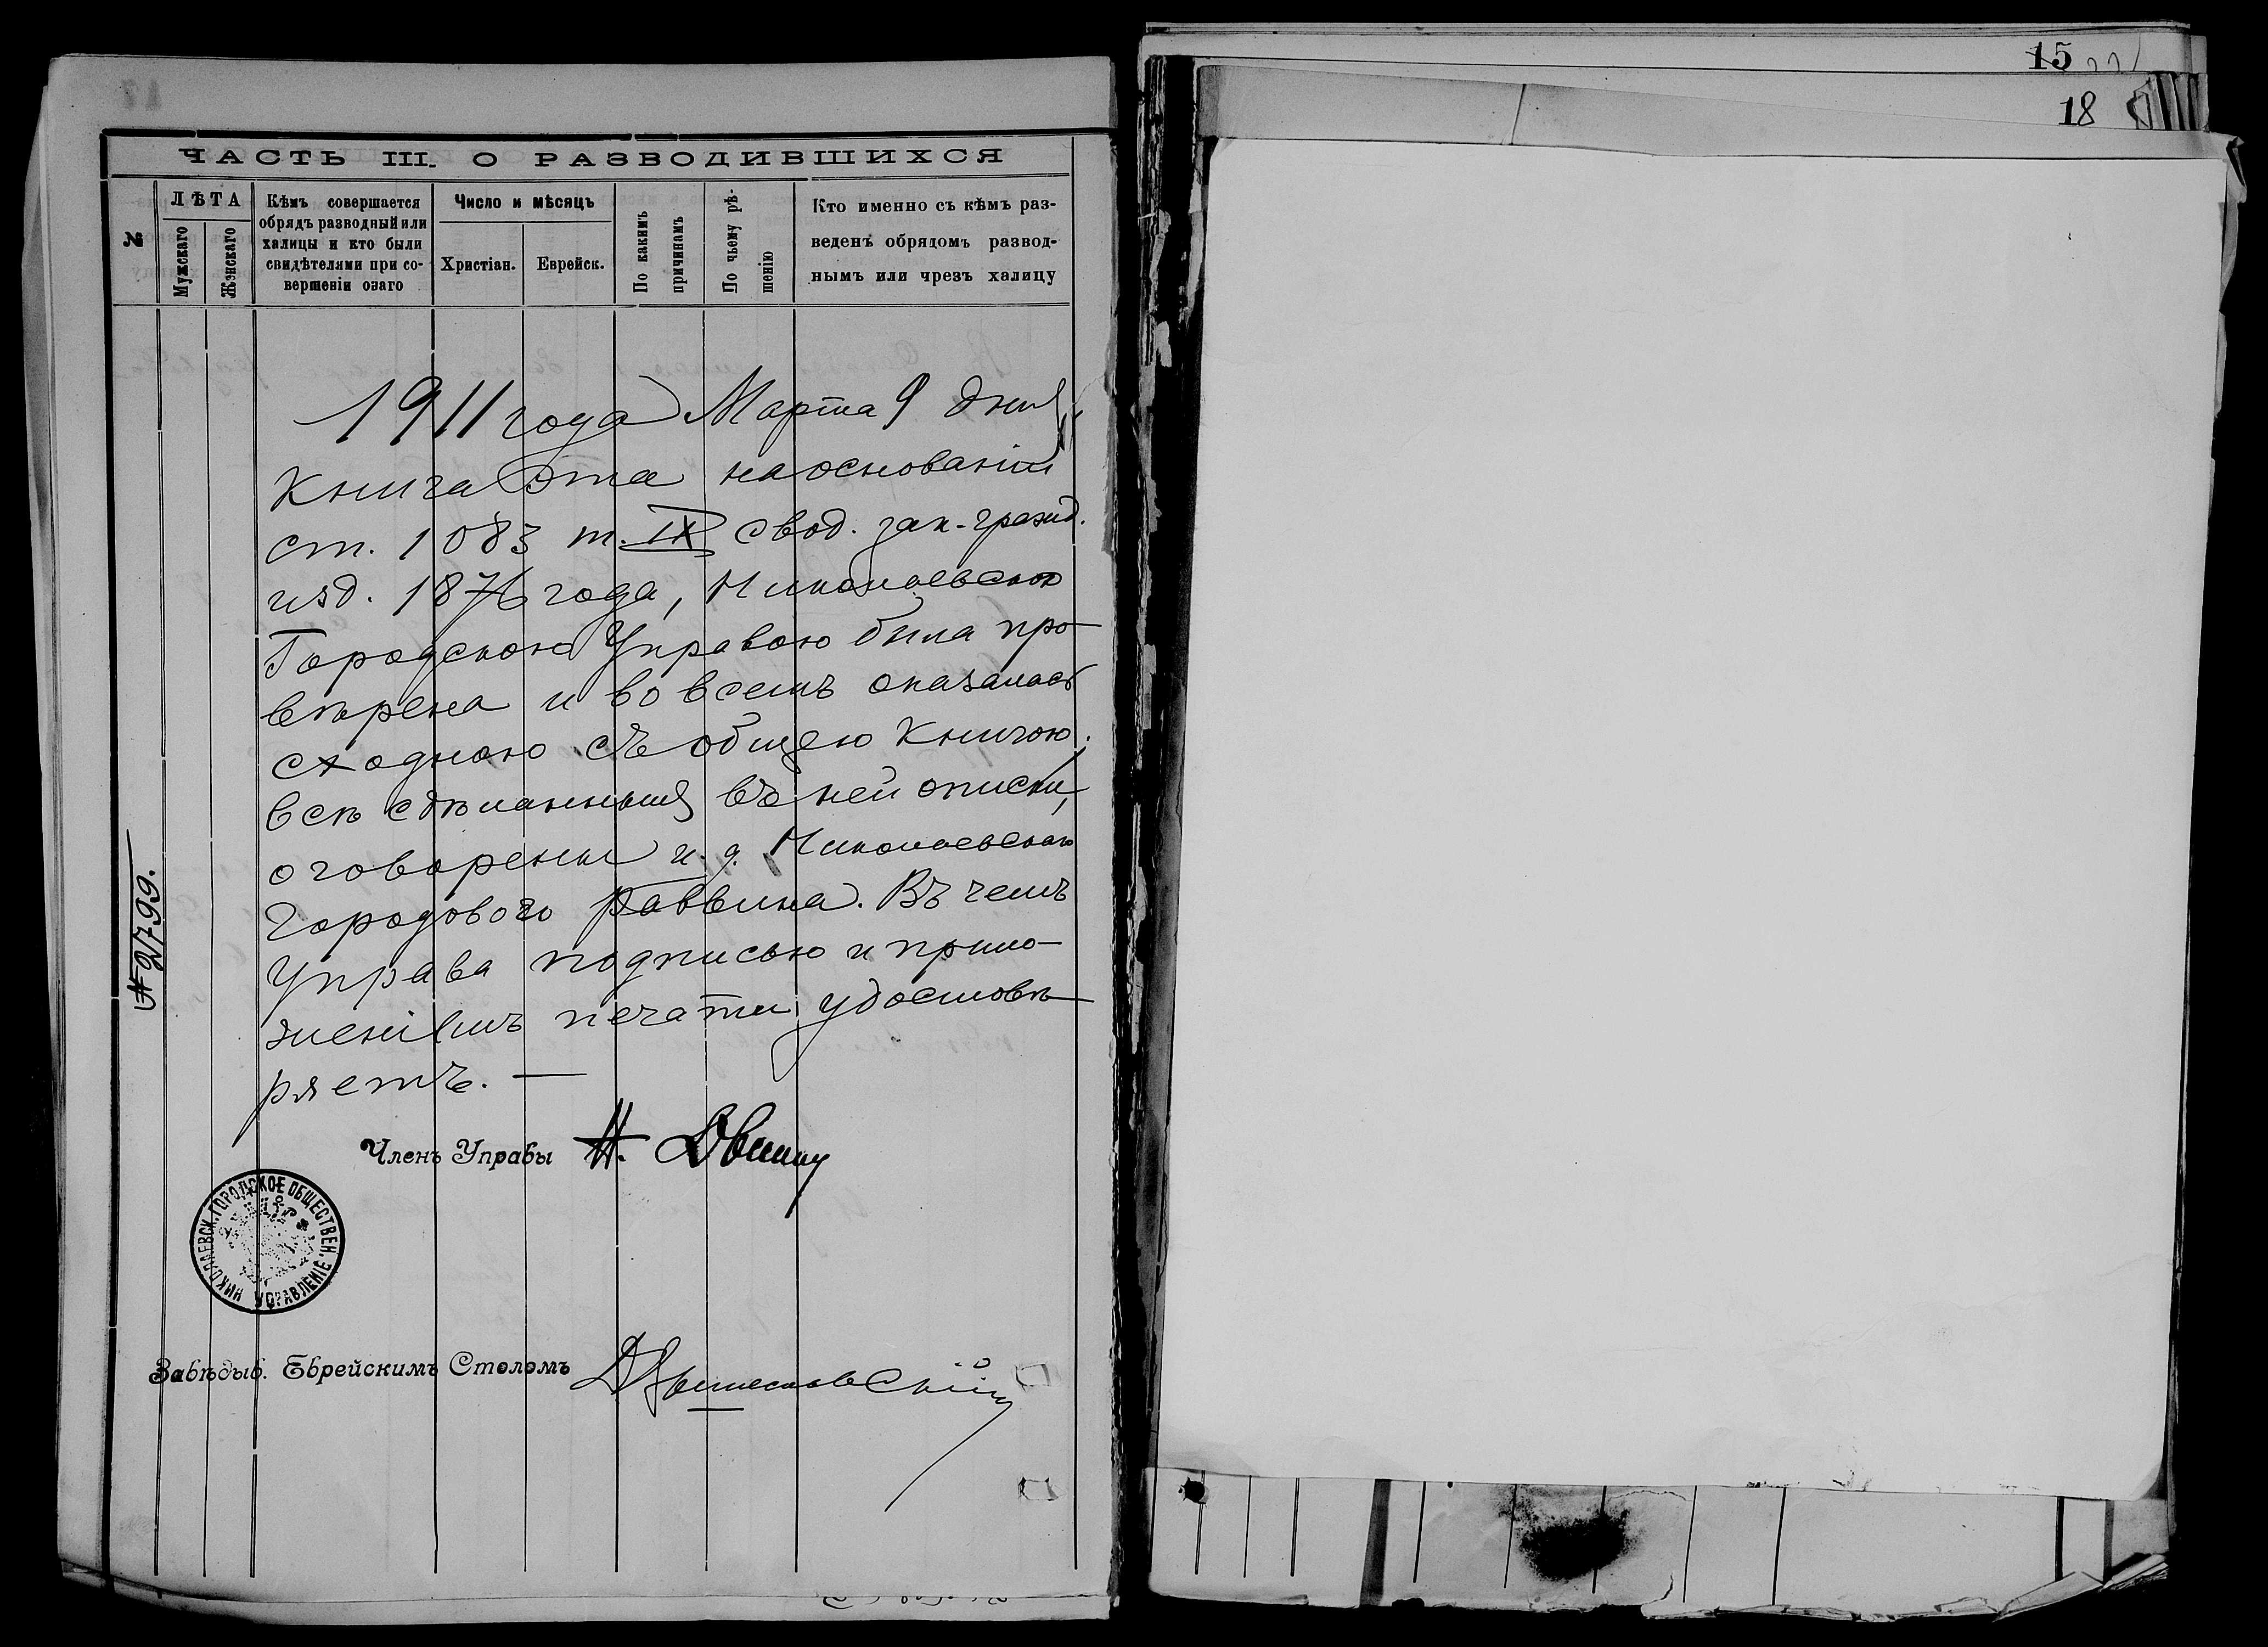 15
18
ЧАСТЬ III. О РАЗВОДИВШИХСЯ
№
ЛѢТА
Мужскаго
Женскаго
Кѣмъ совершается
обрядъ разводный или
халицы и кто были
свидѣтелями при со-
вершеніи онаго
Число и мѣсяцъ
Христіан.
Еврейск.
По какимъ
причинамъ
По чьему рѣ-
шенію
Кто именно съ кѣмъ раз-
веденъ обрядомъ развод-
нымъ или чрезъ халицу
1911 года Марта 9 дня
Книга эта на основаніи
ст. 1083 т. IX свод. зак. гражд.
изд. 1876 года, Николаевскою
Городскою Управою была про-
вѣрена и во всемъ оказалась
сходною съ общею книгою.
Всѣ сдѣланныя въ ней описки,
оговорены и. д. Николаевскаго
Городового Раввина. Въ чемъ
Управа подписью и прило-
женіемъ печати удостовѣ-
ряетъ. —
№ 2799.
Членъ Управы
НИКОЛАЕВСК. ГОРОДСКОЕ ОБЩЕСТВЕН. УПРАВЛЕНІЕ
Завѣдыв. Еврейскимъ Столомъ